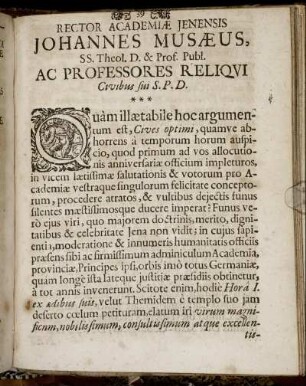 39
RECTOR ACADEMIÆ JENENSIS
JOHANNES MUSÆUS,
SS. Theol. D. & Prof. Publ.
AC PROFESSORES RELIQVI
Civibus sui S. P. D.
***
Quàm illætabile hoc argumen-
tum est, Cives optimi, quamve ab-
horrens à temporum horum auspi-
cio, quod primum ad vos allocutio-
nis anniversariæ officium impleturos,
in vicem lætissimæ salutationis & votorum pro A-
cademiæ vestraque singulorum felicitate concepto-
rum, procedere atratos, & vulnibus dejectis funus
silentes mæstissimosque ducere imperat? Funus ve-
rò ejus viri, quo majorem doctrinis, merito, digni-
tatibus & celebritate Jena non vidit; in cujus sapi-
enti, moderatione & innumeris humanitatis officiis
præsens sibi ac firmissimum adminiculum Academia,
provinciæ, Principes ipsi, orbis imò totus Germaniæ,
quam longè ista lateque justitiæ præsidiis obtinetur,
à tot annis invenerunt. Scitote enim, hodie Horâ I.
ex ædibus suis, velut Themidem è templo suo jam
deserto cœlum petituram, elatum iri virum magni-
ficum, nobilissimum, consultissimum atque excellen-
tis-